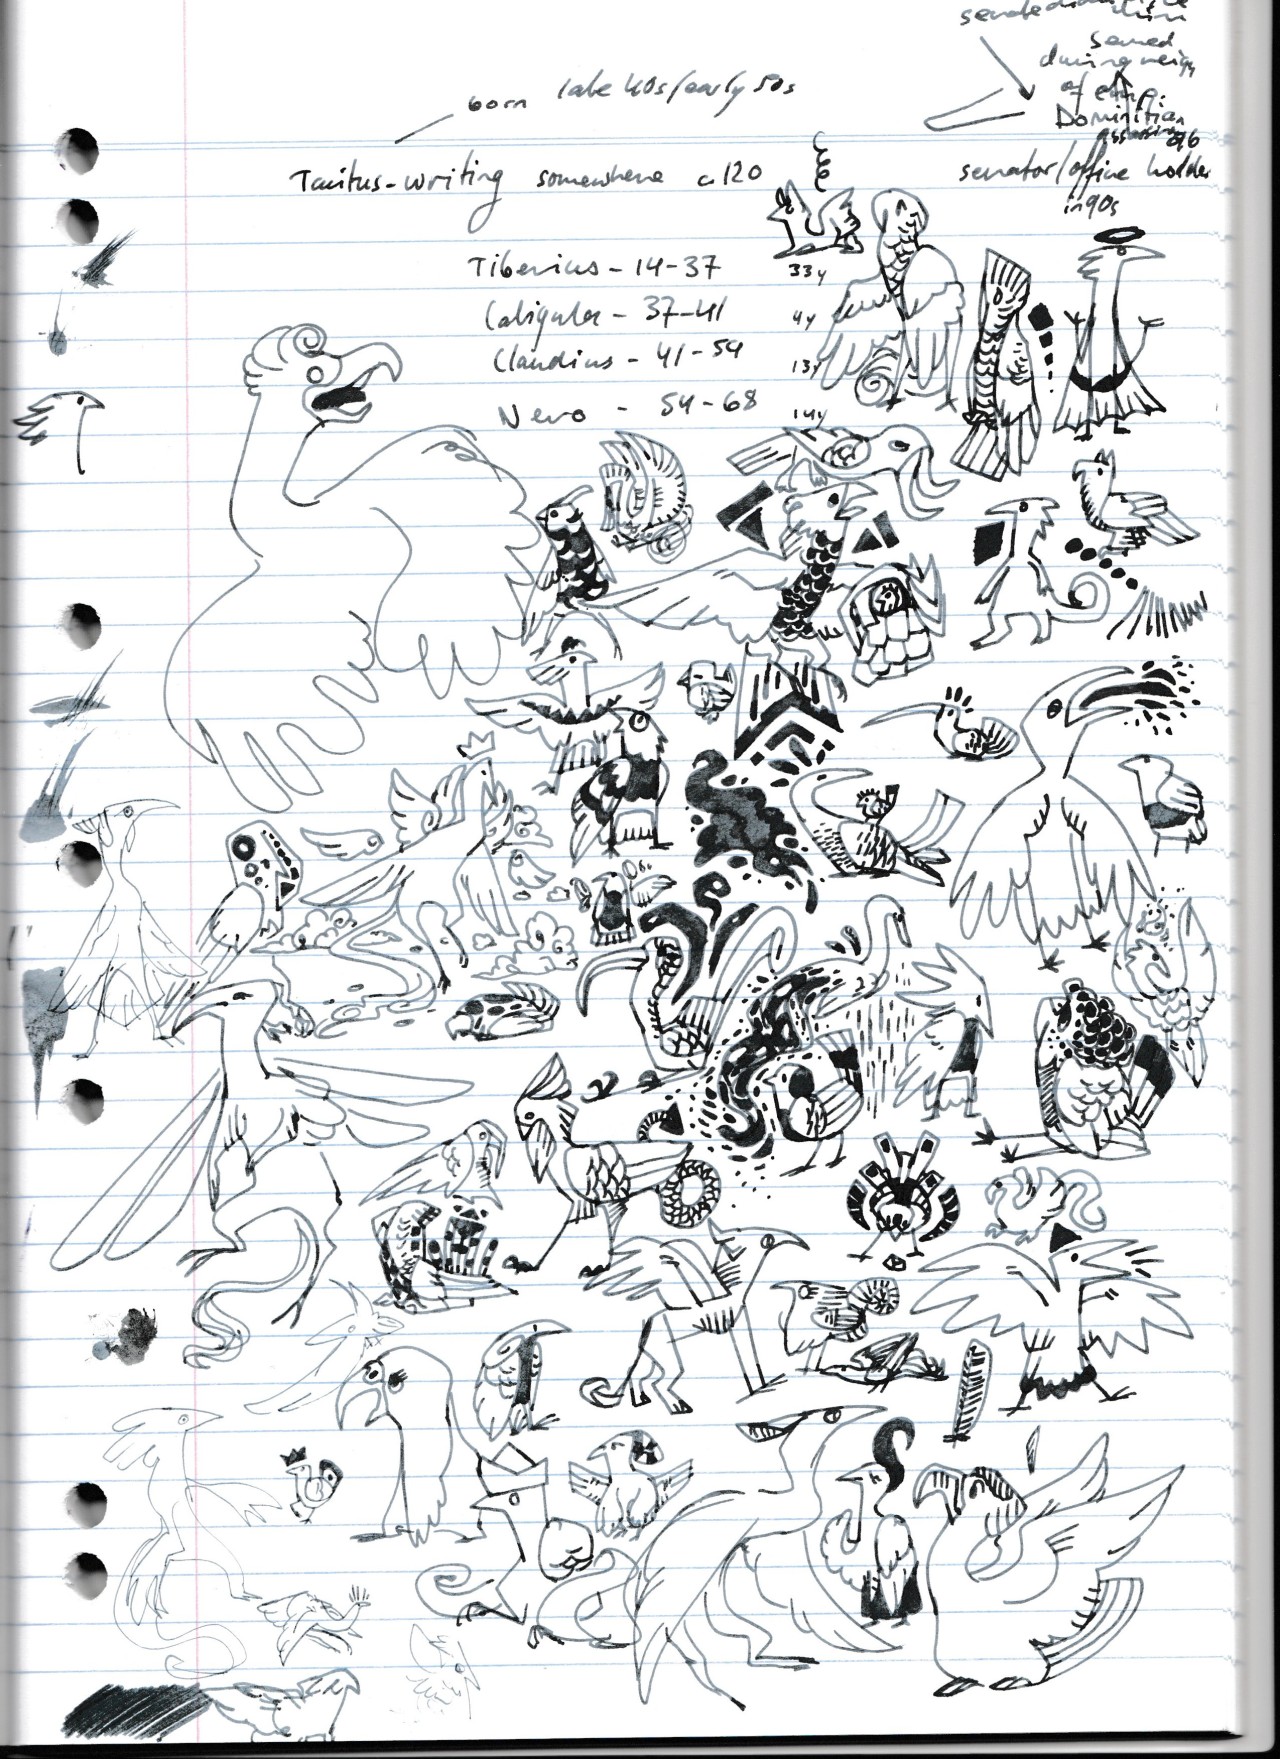 served
during reign
of emp.
Dominitian
assassin. 96
born late 40s/early 50s
Tacitus-writing somewhere c.120
senator/office holder
in 90s
Tiberius - 14-37 33y
Caligula - 37-41 4y
Claudius - 41-54 13y
Nero - 54-68 14y